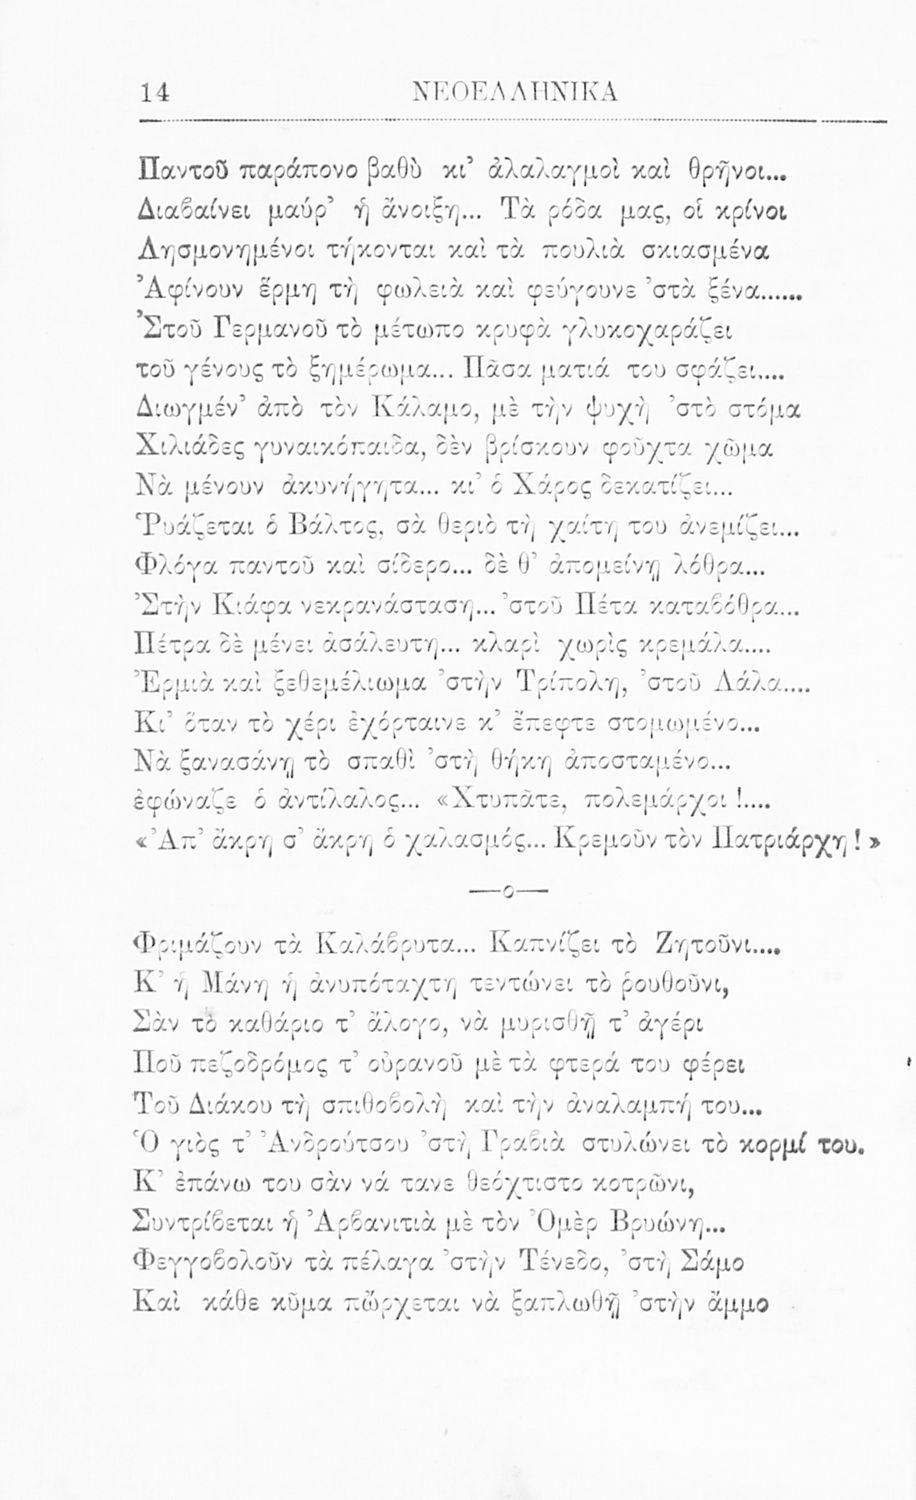 14 ΝΕΟΕΛΛΗΝΙΚΑ
Παντοῦ παράπονο βαθὺ κι’ ἀλαλαγμοὶ καὶ θρῆνοι...
Διαβαίνει μαύρ’ ἡ ἄνοιξη... Τὰ ρόδα μας, οἱ κρίνοι
Λησμονημένοι τήκονται καὶ τὰ πουλιὰ σκιασμένα
Ἀφίνουν ἔρμη τὴ φωλειὰ καὶ φεύγουνε ’στὰ ξένα......
Ὁ̓Στοῦ Γερμανοῦ τὸ μέτωπο κρυφὰ γλυκοχαράζει
τοῦ γένους τὸ ξημέρωμα... Πᾶσα ματιά του σφάζει....
Διωγμέν’ ἀπὸ τὸν Κάλαμο, μὲ τὴν ψυχὴ ’στὸ στόμα
Χιλιάδες γυναικόπαιδα, δὲν βρίσκουν φοῦχτα χῶμα
Νὰ μένουν ἀκυνήγητα... κι’ ὁ Χάρος δεκατίζει...
Ῥυάζεται ὁ Βάλτος, σὰ θεριὸ τὴ χαίτη του ἀνεμίζει...
Φλόγα παντοῦ καὶ σίδερο... δὲ θ’ ἀπομείνῃ λόθρα...
’Στὴν Κιάφα νεκρανάσταση... ’στοῦ Πέτα καταβόθρα...
Πέτρα δὲ μένει ἀσάλευτη... κλαρὶ χωρὶς κρεμάλα....
Ἐρμιὰ καὶ ξεθεμέλιωμα ’στὴν Τρίπολη, ’στοῦ Λάλα....
Κι’ ὅταν τὸ χέρι ἐχόρταινε κ’ ἔπεφτε στομωμένο...
Νὰ ξανασάνῃ τὸ σπαθὶ ’στὴ θήκη ἀποσταμένο...
ἐφώναζε ὁ ἀντίλαλος... «Χτυπᾶτε, πολεμάρχοι !....
«Ἀπ’ ἄκρη σ’ ἄκρη ὁ χαλασμός... Κρεμοῦν τὸν Πατριάρχη ! »
—ο—
Φριμάζουν τὰ Καλάβρυτα... Καπνίζει τὸ Ζητοῦνι....
Κ’ ἡ Μάνη ἡ ἀνυπόταχτη τεντώνει τὸ ῥουθοῦνι,
Σὰν τὸ καθάριο τ’ ἄλογο, νὰ μυρισθῇ τ’ ἀγέρι
Ποῦ πεζοδρόμος τ’ οὐρανοῦ μὲ τὰ φτερά του φέρει
Τοῦ Διάκου τὴ σπιθοβολὴ καὶ τὴν ἀναλαμπή του...
Ὁ γιὸς τ’ Ἀνδρούτσου ’στὴ Γραβιὰ στυλώνει τὸ κορμί του.
Κ’ ἐπάνω του σὰν νά τανε θεόχτιστο κοτρῶνι,
Συντρίβεται ἡ Ἀρβανιτιὰ μὲ τὸν Ὀμὲρ Βρυώνη...
Φεγγοβολοῦν τὰ πέλαγα ’στὴν Τένεδο, ’στὴ Σάμο
Καὶ κάθε κῦμα πὤρχεται νὰ ξαπλωθῇ ’στὴν ἄμμο